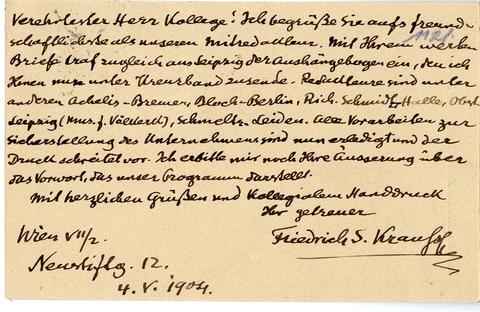 Verehrtester Herr Kollege! Ich begrüße Sie aufs freund-
schaftlichste als unseren Mitredakteur. Mit Ihrem werten
1121.
Briefe traf zugleich aus Leipzig der Aushängebogen ein, den ich
Ihnen nun unter Kreuzband zusende. Redakteure sind unter
anderen Achelis-Bremen, Bloch-Berlin, Rich. Schmidt-Halle, Obst-
Leipzig (Mus. f. Völkerk.), Schmeltz-Leiden. Alle Vorarbeiten zur
Sicherstellung des Unternehmens sind nun erledigt und der
Druck schreitet vor. Ich erbitte mir noch Ihre Äusserung über
das Vorwort, das unser Programm darstellt.
Mit herzlichen Grüßen und Kollegialem Handdruck
Ihr getreuer
Friedrich S. Krauss
Wien VII/2.
Neustiftg. 12.
4. V. 1904.